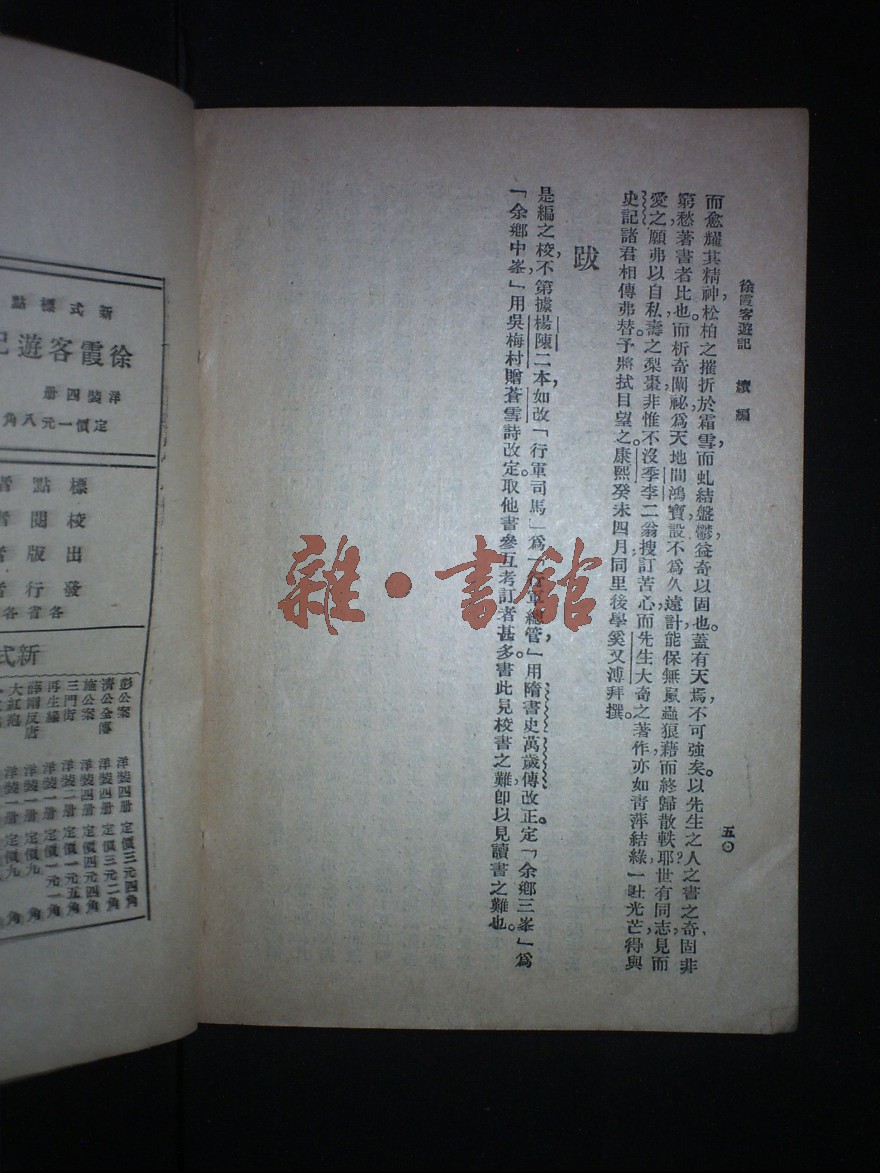 徐霞客遊記　續編
五〇
而愈耀其精神，松柏之摧折於霜雪，而虬結盤鬱，益奇以固也。蓋有天焉，不可強矣。以先生之人之書之奇，固非
窮愁著書者比也。而析奇闡祕，爲天地間鴻寶，設不爲久遠計，能保無鼠蟲狼藉而終歸散軼耶？世有同志，見而
愛之，願弗以自私，壽之梨棗，非惟不沒季李二翁搜訂苦心，而先生大奇之著作，亦如青萍結綠，一吐光芒，得與
史記諸君相傳弗替，予將拭目望之。康熙癸未四月，同里後學奚又溥拜撰。
跋
是編之校，不第據楊陳二本，如改「行軍司馬」爲「行軍總管」，用隋書史萬歲傳改正。定「余鄉三峯」爲
「余鄉中峯」，用吳梅村贈蒼雪詩改定。取他書參互考訂者甚多，書此見校書之難，卽以見讀書之難也。
雜·書館
新式標點
徐霞客遊記
洋裝四册
定價一元八角
標點者
校閱者
出版者
發行者
各省各
新式
彭公案　洋裝四册　定價三元四角
濟公全傳　洋裝四册　定價三元二角
施公案　洋裝四册　定價四元四角
三門街　洋裝二册　定價一元五角
再生緣　洋裝一册　定價一元一角
薛剛反唐　洋裝一册　定價九角
大紅袍　洋裝一册　定價九角